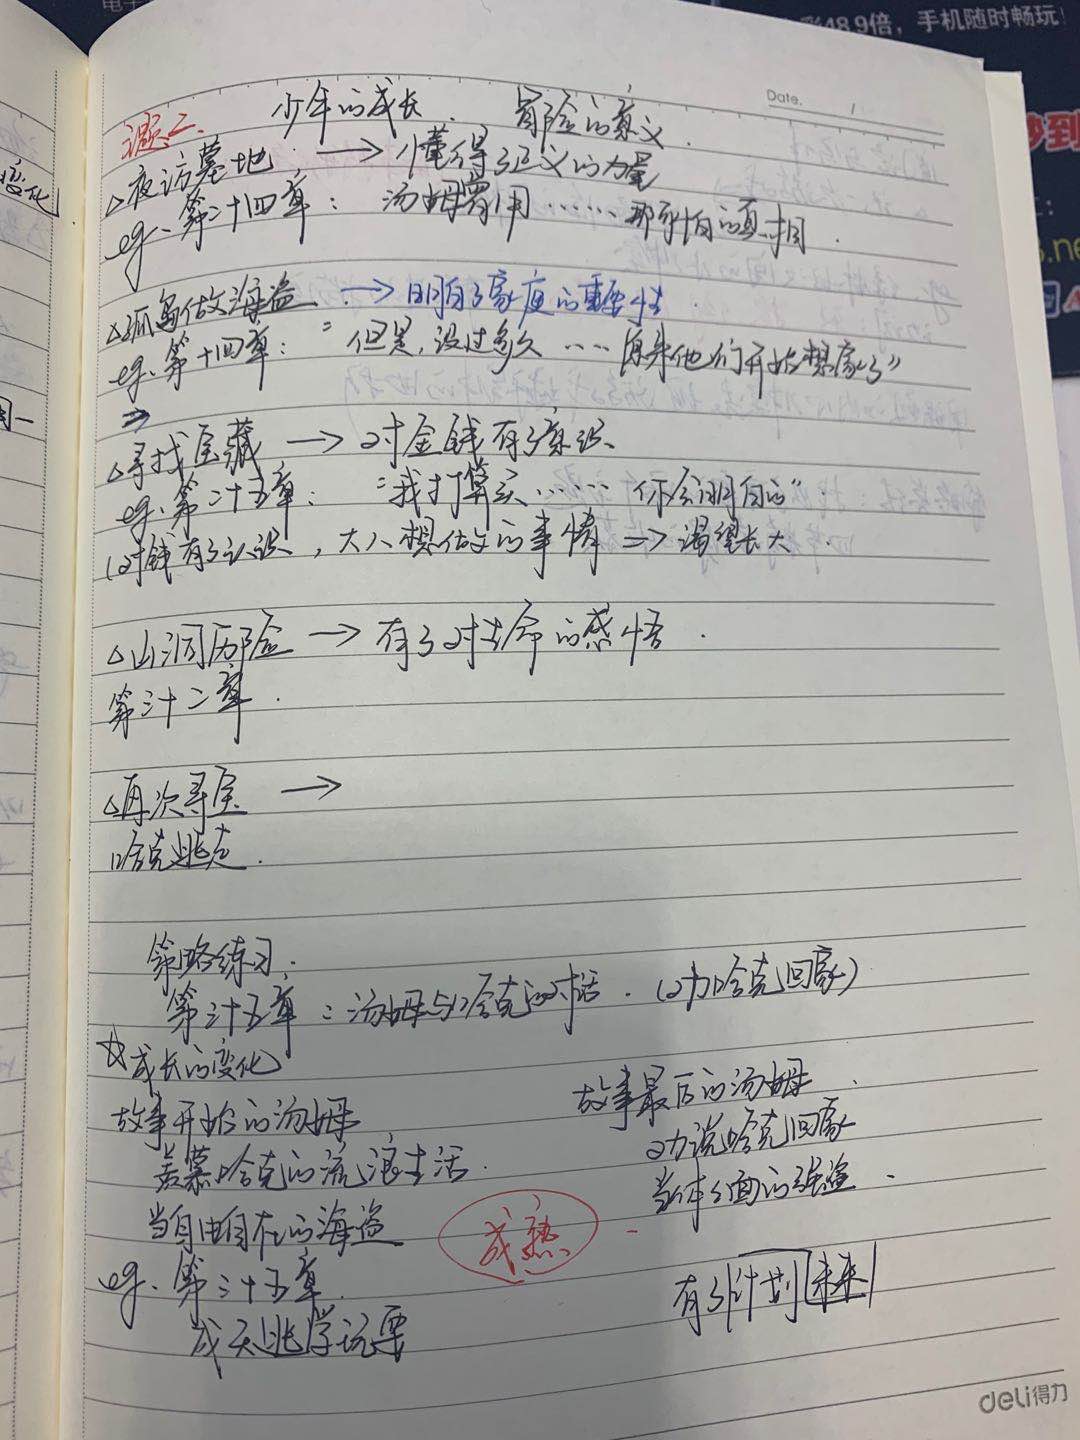 48.9倍，手机随时畅玩！
Date.
少年的成长. 冒险的意义.
课二、
△夜访墓地 → 懂得了正义的力量
eg、第二十四章： 汤姆 …… 那可怕的真相.
变化
△孤岛做海盗 → 明白了家庭的重要性.
eg、第十四章： "但是，没过多久 …… 原来他们开始想家了"
△寻找宝藏 → 对金钱有了意识
eg、第二十五章： "我打算买 …… 你会明白的".
(对钱有了认识，大人想做的事情 ⇒ 渴望长大.
△山洞历险 → 有了对生命的感悟.
第三十二章.
△再次寻宝 →
哈克逃走.
策略练习：
第三十五章：汤姆与哈克的对话. (劝哈克回家)
☆成长的变化
故事开始的汤姆 故事最后的汤姆.
羡慕哈克的流浪生活. 劝说哈克回家
当自由自在的海盗 当体面的强盗.
成熟
eg、第三十五章. 有了计划 未来
成天逃学玩耍
deli得力